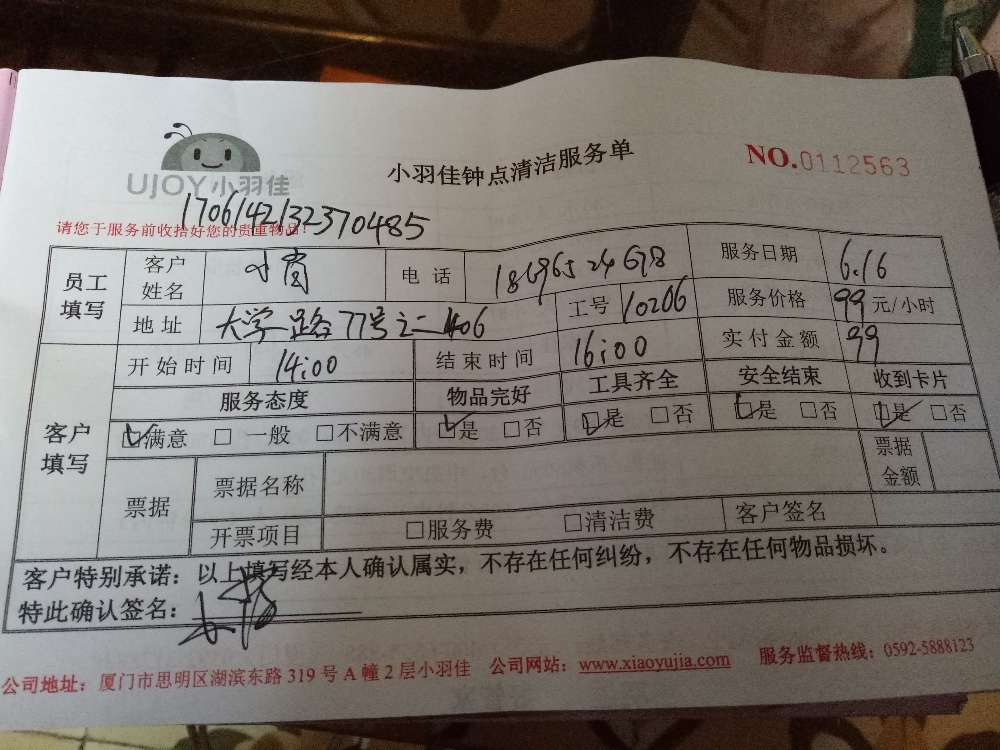 UJOY小羽佳
小羽佳钟点清洁服务单
NO.0112563
1706142132370485
请您于服务前收拾好您的贵重物品!
员工填写 客户姓名 电话 服务日期 6.16
地址 大学路77号之二406 工号 10206 服务价格 99 元/小时
客户填写 开始时间 14:00 结束时间 16:00 实付金额 99
服务态度 物品完好 工具齐全 安全结束 收到卡片
☑满意 □一般 □不满意 ☑是 □否 ☑是 □否 ☑是 □否 ☑是 □否
票据 票据名称 票据金额
开票项目 □服务费 □清洁费 客户签名
客户特别承诺：以上填写经本人确认属实，不存在任何纠纷，不存在任何物品损坏。
特此确认签名：
公司地址：厦门市思明区湖滨东路319号A幢2层小羽佳 公司网站：www.xiaoyujia.com 服务监督热线：0592-5888123